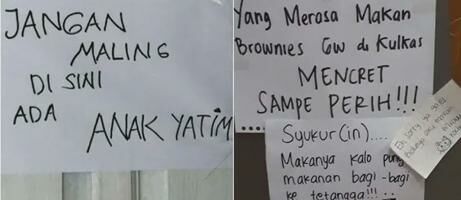 JANGAN
MALING
DI SINI
ADA
ANAK YATIM
Yang Merasa Makan
Brownies Gw di Kulkas
MENCRET
SAMPE PERIH!!!
Syukur(in)....
Makanya kalo pun
makanan bagi-bagi
ke tetangga!!!
Eh sorry ya